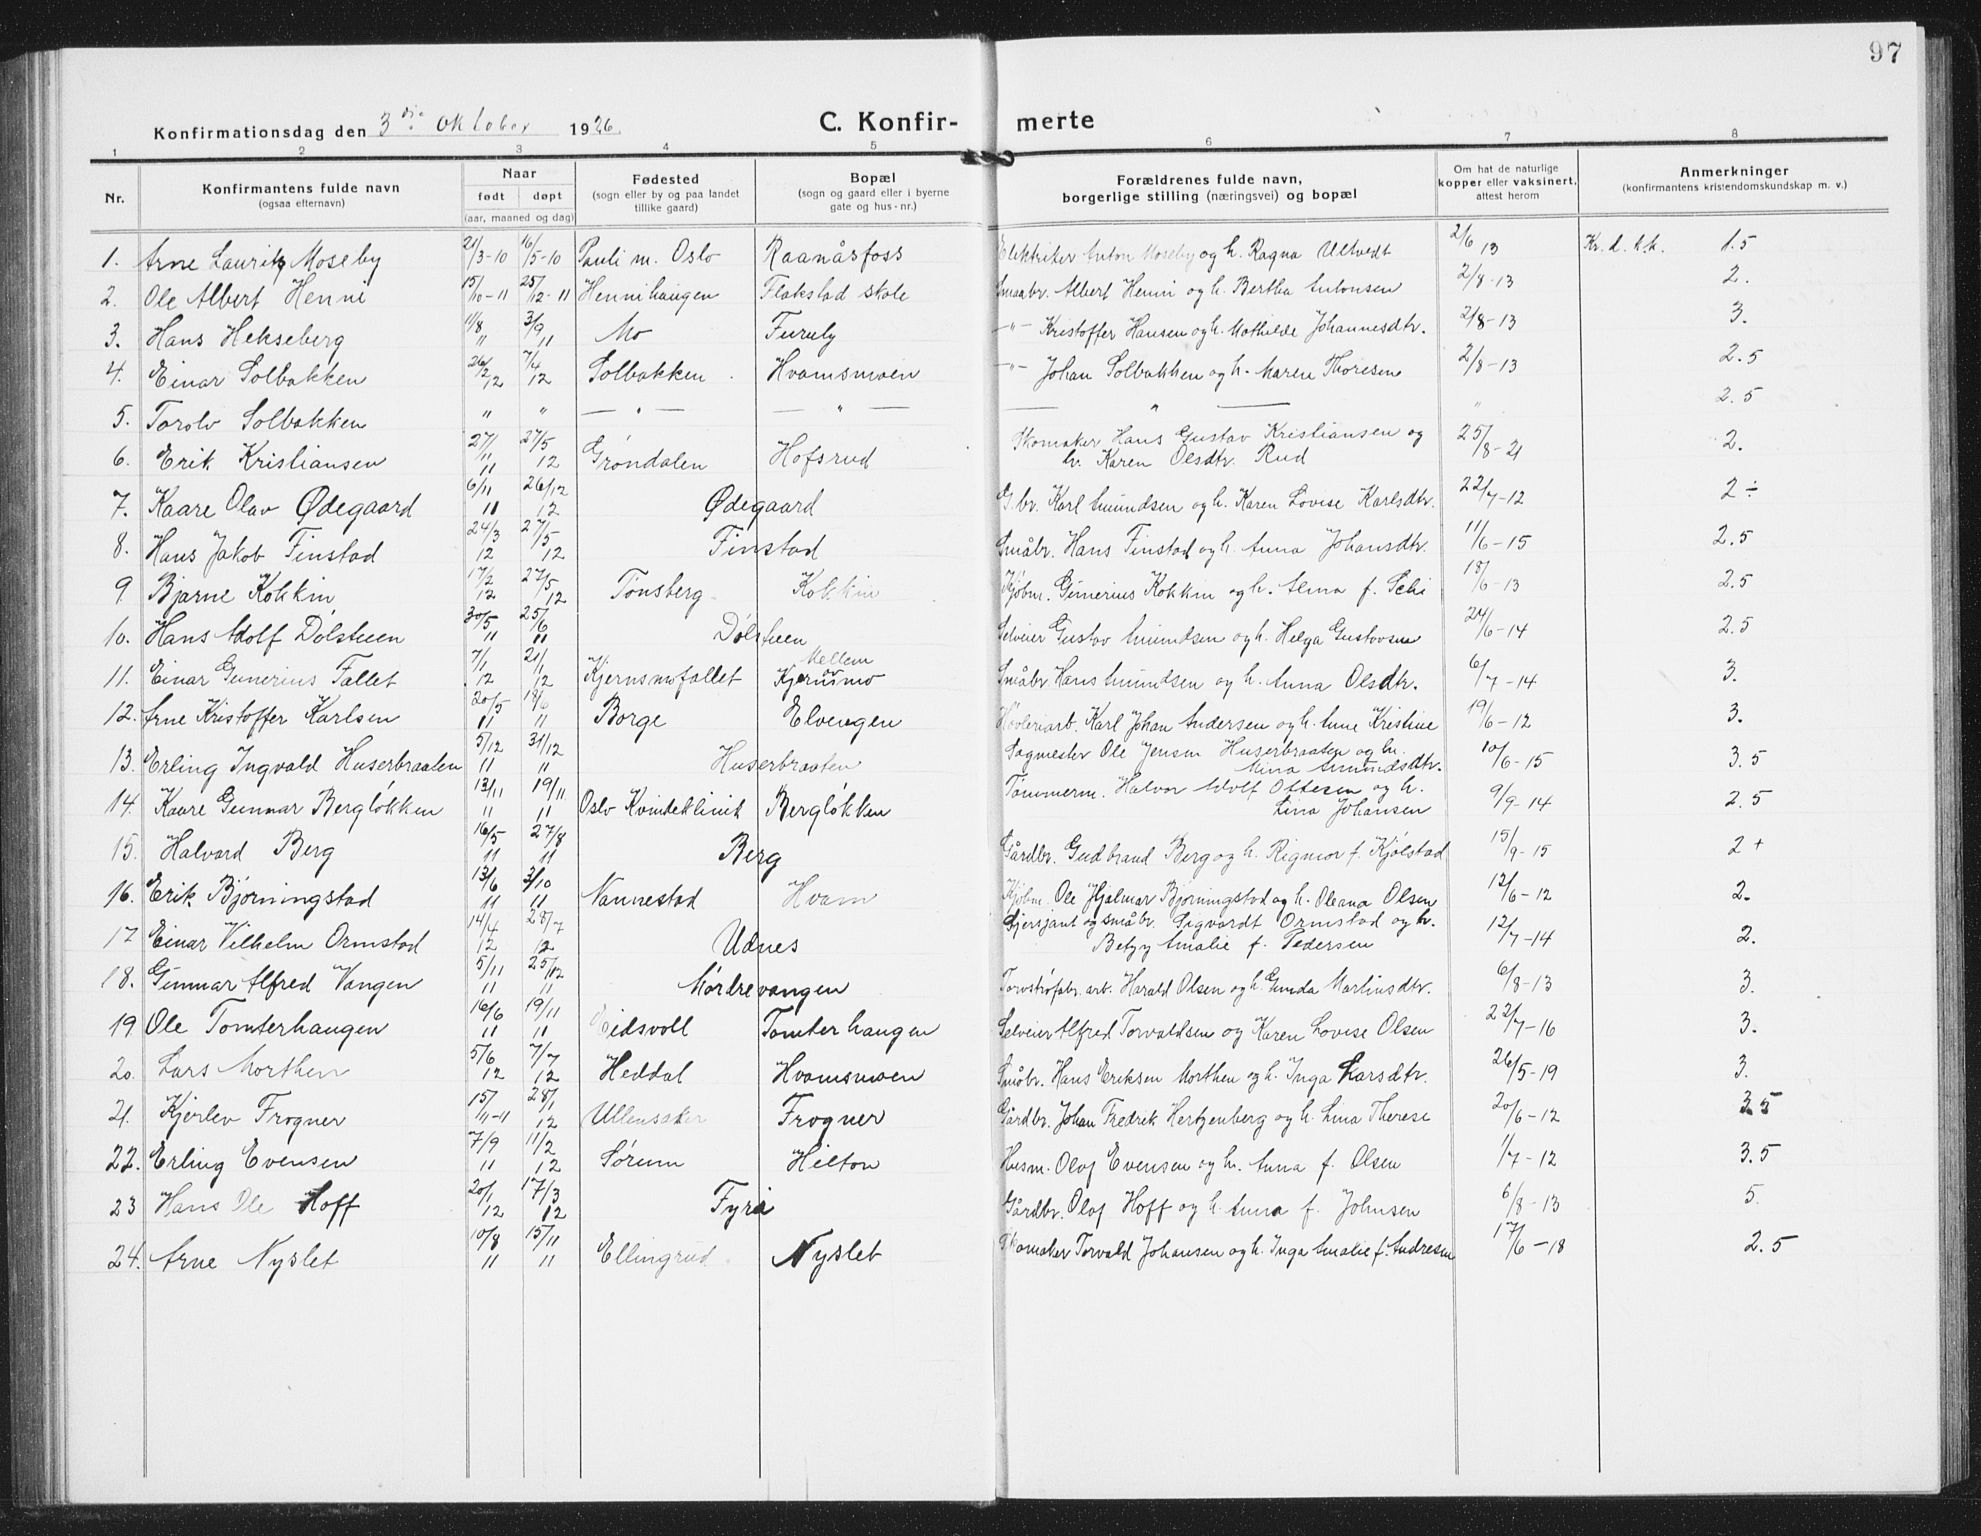 97
Konfirmationsdag den 3die Oktober 1926
C. Konfirmerte
1 2 3 4 5 6 7 8
Nr. | Konfirmantens fulde navn (ogsaa efternavn) | Naar født døpt (aar, maaned og dag) | Fødested (sogn eller by og paa landet tillike gaard) | Bopæl (sogn og gaard eller i byerne gate og hus-nr.) | Forældrenes fulde navn, borgerlige stilling (næringsvei) og bopæl | Om hat de naturlige kopper eller vaksinert, attest herom | Anmerkninger (konfirmantens kristendomskundskap m. v.)
1. Arne Lauritz Moseby 21/3-10 16/5-10 Pauli m. Oslo Raanåsfoss Elektriker Anton Moseby og h. Ragna Ultvedt 2/6 13 Kr.d.kk. 1.5
2. Ole Albert Henni 15/10-11 25/12-11 Hennihaugen Flakstad skole Smaabr. Albert Henni og h. Bertha Antonsen 2/8-13 2.
3. Hans Hekseberg 11/8 11 3/9 11 Mo Furuly -"- Kristoffer Hansen og h. Mathilde Johannesdtr. 2/8-13 3.
4. Einar Solbakken 26/2 12 7/4 12 Solbakken Hvamsmoen -"- Johan Solbakken og h. Maren Thoresen 2/8-13 2.5
5. Torolv Solbakken " " — " — — " — — " — " 2.5
6. Erik Kristiansen 27/11 11 27/5 12 Grøndalen Hofsrud Skomaker Hans Gustav Kristiansen og
h. Karen Olsdtr. Rud 25/8-21 2.
7. Kaare Olav Ødegaard 6/11 11 26/12 12 Ødegaard G.br. Karl Amundsen og h. Karen Lovise Karlsdtr. 22/7-12 2÷
8. Hans Jakob Finstad 24/3 12 27/5 12 Finstad Småbr. Hans Finstad og h. Anna Johansdtr. 11/6-15 2.5
9 Bjarne Kokkin 17/2 12 27/5 12 Tønsberg Kokkin Kjøbm. Gunerius Kokkin og h. Alma f. 18/6-13 2.5
10. Hans Adolf Dølsteen 30/5 11 25/6 11 Dølsteen Selveier Gustav Amundsen og h. Helga Gustavsen 24/6-14 2.5
11. Einar Gunerius Fallet 7/1 12 21/1 12 Kjernsmofallet Mellem Kjernsmo Småbr Hans Amundsen og h. Anna Olsdtr. 6/7-14 3.
12. Arne Kristoffer Karlsen 20/5 11 18/6 11 Borge Elvengen Høvleriarb. Karl Johan Andersen og h. Anne Kristine 19/6-12 3.
13. Erling Ingvald Huserbraaten 5/12 11 31/12 11 Huserbraaten Sagmester Ole Jensen Huserbraaten og h.
Mina Amundsdtr. 10/6-15 3.5
14. Kaare Gunnar Bergløkken 13/11 11 19/11 11 Oslo Kvindeklinik Bergløkken Tømmerm. Halvor Adolf Ottesen og h.
Lina Johansen 9/9-14 2.5
15. Halvard Berg 16/5 11 27/8 11 Berg Gårdbr. Gudbrand Berg og h. Rigmor f. Kjølstad 15/9-15 2+
16. Erik Bjørningstad 13/6 11 3/10 11 Nannestad Hvam Kjøbm. Ole Hjalmar Bjørningstad og h. Oleana Olsen 12/6-12 2.
17 Einar Vilhelm Ormstad 14/4 12 28/7 12 Udnes Sjersjant og småbr. Sigvardt Ormstad og h.
Betzy Amalie f. Pedersen 12/7-14 2.
18. Gunnar Alfred Vangen 5/11 11 25/12 11 Mørdrevangen Torvstrøfabr. arb. Harald Olsen og h. Gunda Martinsdtr. 6/8-13 3.
19 Ole Tomterhaugen 16/6 11 19/11 11 Eidsvoll Tomterhaugen Selveier Alfred Torvaldsen og Karen Lovise Olsen 22/7-16 3.
20. Lars Morthen 5/6 12 7/7 12 Heddal Hvamsmoen Småbr. Hans Eriksen Morthen og h. Inga Larsdtr. 26/5-19 3.
21. Kjerlev Frogner 15/11-11 28/1 12 Ullensaker Frogner Gårdbr. Johan Fredrik Hertzenberg og h. Lina Therese 20/6-12 3.5
22. Erling Evensen 7/9 11 11/2 12 Sørum Hilton Husm. Olaf Evensen og h. Anna f. Olsen 1/7-12 3.5
23 Hans Ole Hoff 20/1 12 17/3 12 Fyri Gårdbr. Olaf Hoff og h. Anna f. Johnsen 6/8-13 5.
24. Arne Nyslet 10/8 11 15/11 11 Ellingrud Nyslet Skomaker Torvald Johansen og h. Inga Amalie f. Andresen 17/6-18 2.5